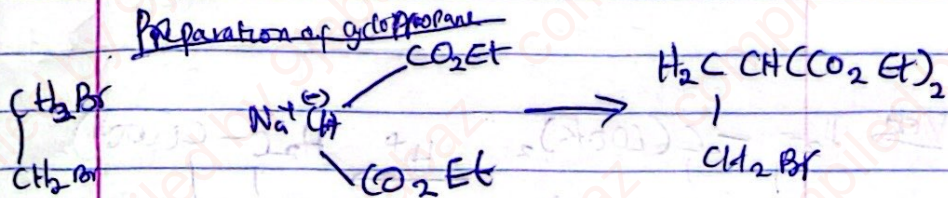 Preparation of cyclopropane
CH2Br
CH2Br
Na+ (-)CH
CO2Et
CO2Et
H2C CH(CO2Et)2
CH2Br